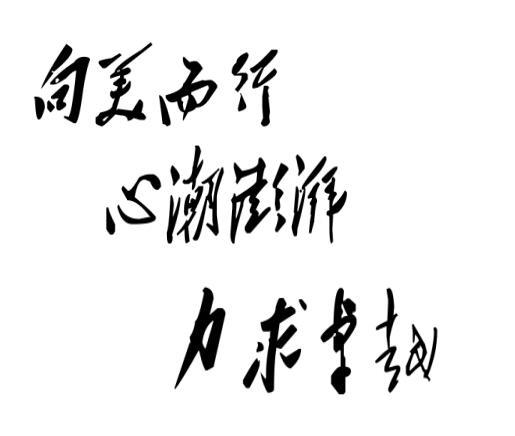 向美而行
心潮澎湃
力求卓越